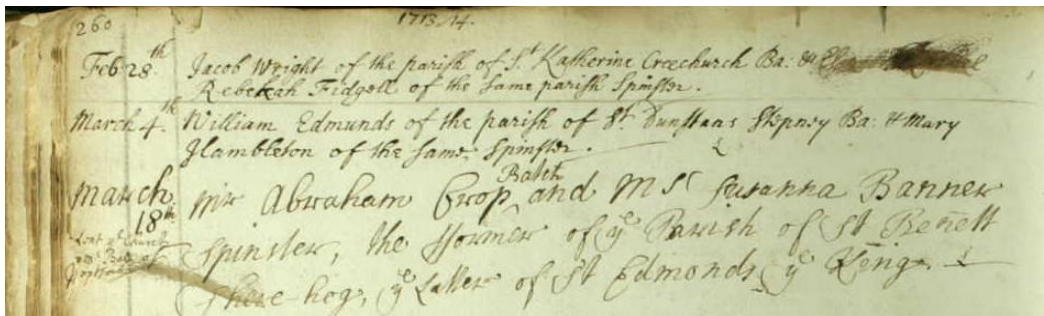 260
1713/14.
Feb 28th. Jacob Wright of the parish of St Katherine Creechurch Ba: &
Rebekah Fidgell of the same parish Spinster.
March 4th. William Edmunds of the parish of St Dunstans Stepney Ba: & Mary
Hambleton of the same, Spinster.
Batch
March 18th. Mr Abraham Crop and Ms Susanna Banner
Spinster, the fformer of ye Parish of St Bennett
Shere-hog, ye Latter of St Edmonds ye King.
Lent ye Church